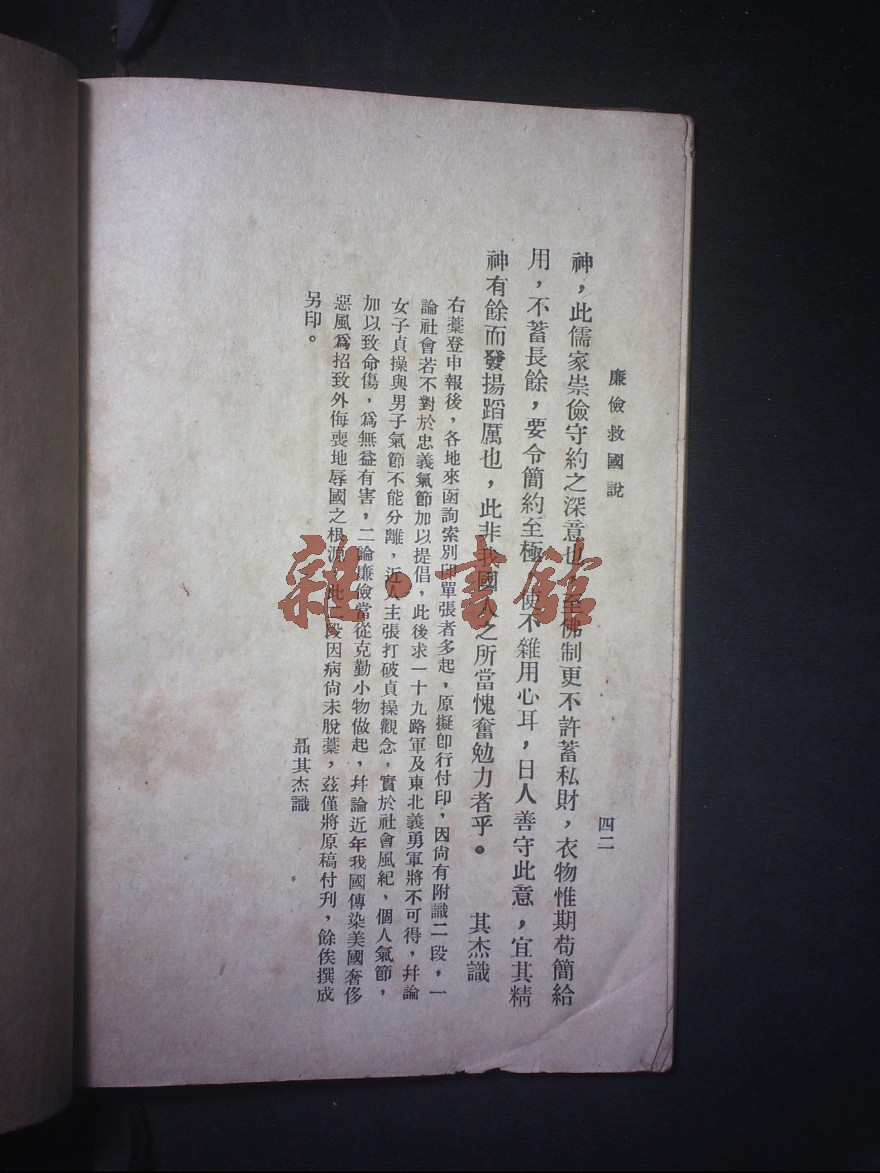 廉儉救國說
四二
神，此儒家崇儉守約之深意也，至佛制更不許蓄私財，衣物惟期苟簡給
用，不蓄長餘，要令簡約至極，使不雜用心耳，日人善守此意，宜其精
神有餘而發揚蹈厲也，此非我國人之所當愧奮勉力者乎。　其杰識
右藁登申報後，各地來函詢索別印單張者多起，原擬卽行付印，因尙有附識二段，一
論社會若不對於忠義氣節加以提倡，此後求一十九路軍及東北義勇軍將不可得，幷論
女子貞操與男子氣節不能分離，近人主張打破貞操觀念，實於社會風紀，個人氣節，
加以致命傷，爲無益有害，二論廉儉當從克勤小物做起，幷論近年我國傳染美國奢侈
惡風爲招致外侮喪地辱國之根源，此二段因病尙未脫藁，茲僅將原稿付刋，餘俟撰成
另印。
聶其杰識
雜·書館